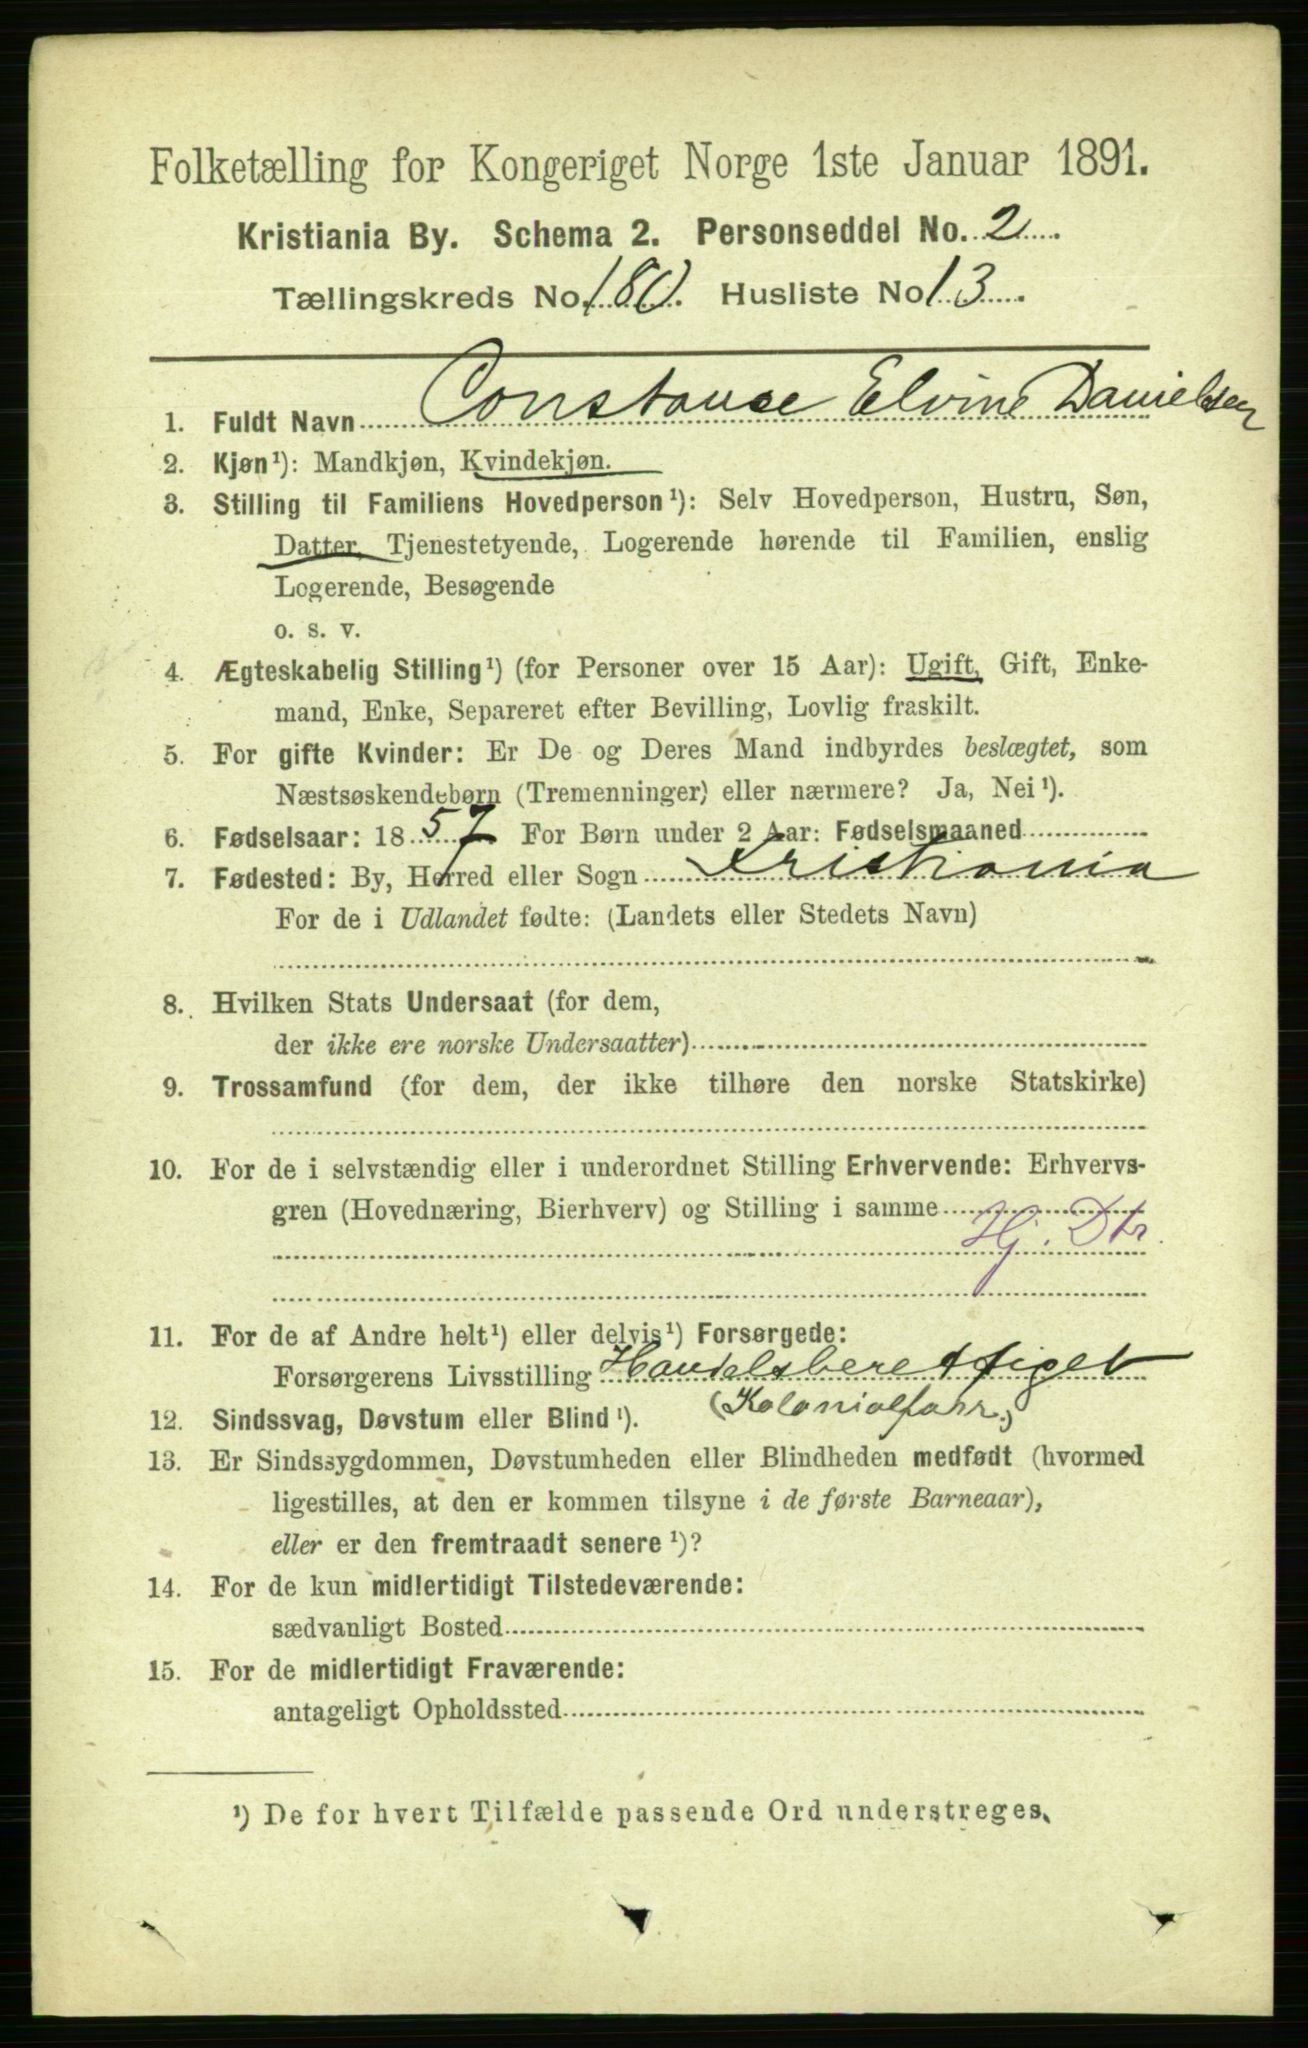 Folketælling for Kongeriget Norge 1ste Januar 1891.
Kristiania By. Schema 2. Personseddel No. 2
Tællingskreds No. 180. Husliste No 13.
1. Fuldt Navn Constanse Elvine Danielsen
2. Kjøn¹): Mandkjøn, Kvindekjøn.
3. Stilling til Familiens Hovedperson¹): Selv Hovedperson, Hustru, Søn,
Datter, Tjenestetyende, Logerende hørende til Familien, enslig
Logerende, Besøgende
o. s. v.
4. Ægteskabelig Stilling¹) (for Personer over 15 Aar): Ugift, Gift, Enke-
mand, Enke, Separeret efter Bevilling, Lovlig fraskilt.
5. For gifte Kvinder: Er De og Deres Mand indbyrdes beslægtet, som
Næstsøskendebørn (Tremenninger) eller nærmere? Ja, Nei¹).
6. Fødselsaar: 1857 For Børn under 2 Aar: Fødselsmaaned
7. Fødested: By, Herred eller Sogn Kristiania
For de i Udlandet fødte: (Landets eller Stedets Navn)
8. Hvilken Stats Undersaat (for dem,
der ikke ere norske Undersaatter)
9. Trossamfund (for dem, der ikke tilhøre den norske Statskirke)
10. For de i selvstændig eller i underordnet Stilling Erhvervende: Erhvervs-
gren (Hovednæring, Bierhverv) og Stilling i samme
Hj. Dtr.
11. For de af Andre helt¹) eller delvis¹) Forsørgede:
Forsørgerens Livsstilling Handelsberettiget
(Kolonialforr.)
12. Sindssvag, Døvstum eller Blind¹).
13. Er Sindssygdommen, Døvstumheden eller Blindheden medfødt (hvormed
ligestilles, at den er kommen tilsyne i de første Barneaar),
eller er den fremtraadt senere¹)?
14. For de kun midlertidigt Tilstedeværende:
sædvanligt Bosted
15. For de midlertidigt Fraværende:
antageligt Opholdssted
¹) De for hvert Tilfælde passende Ord understreges.